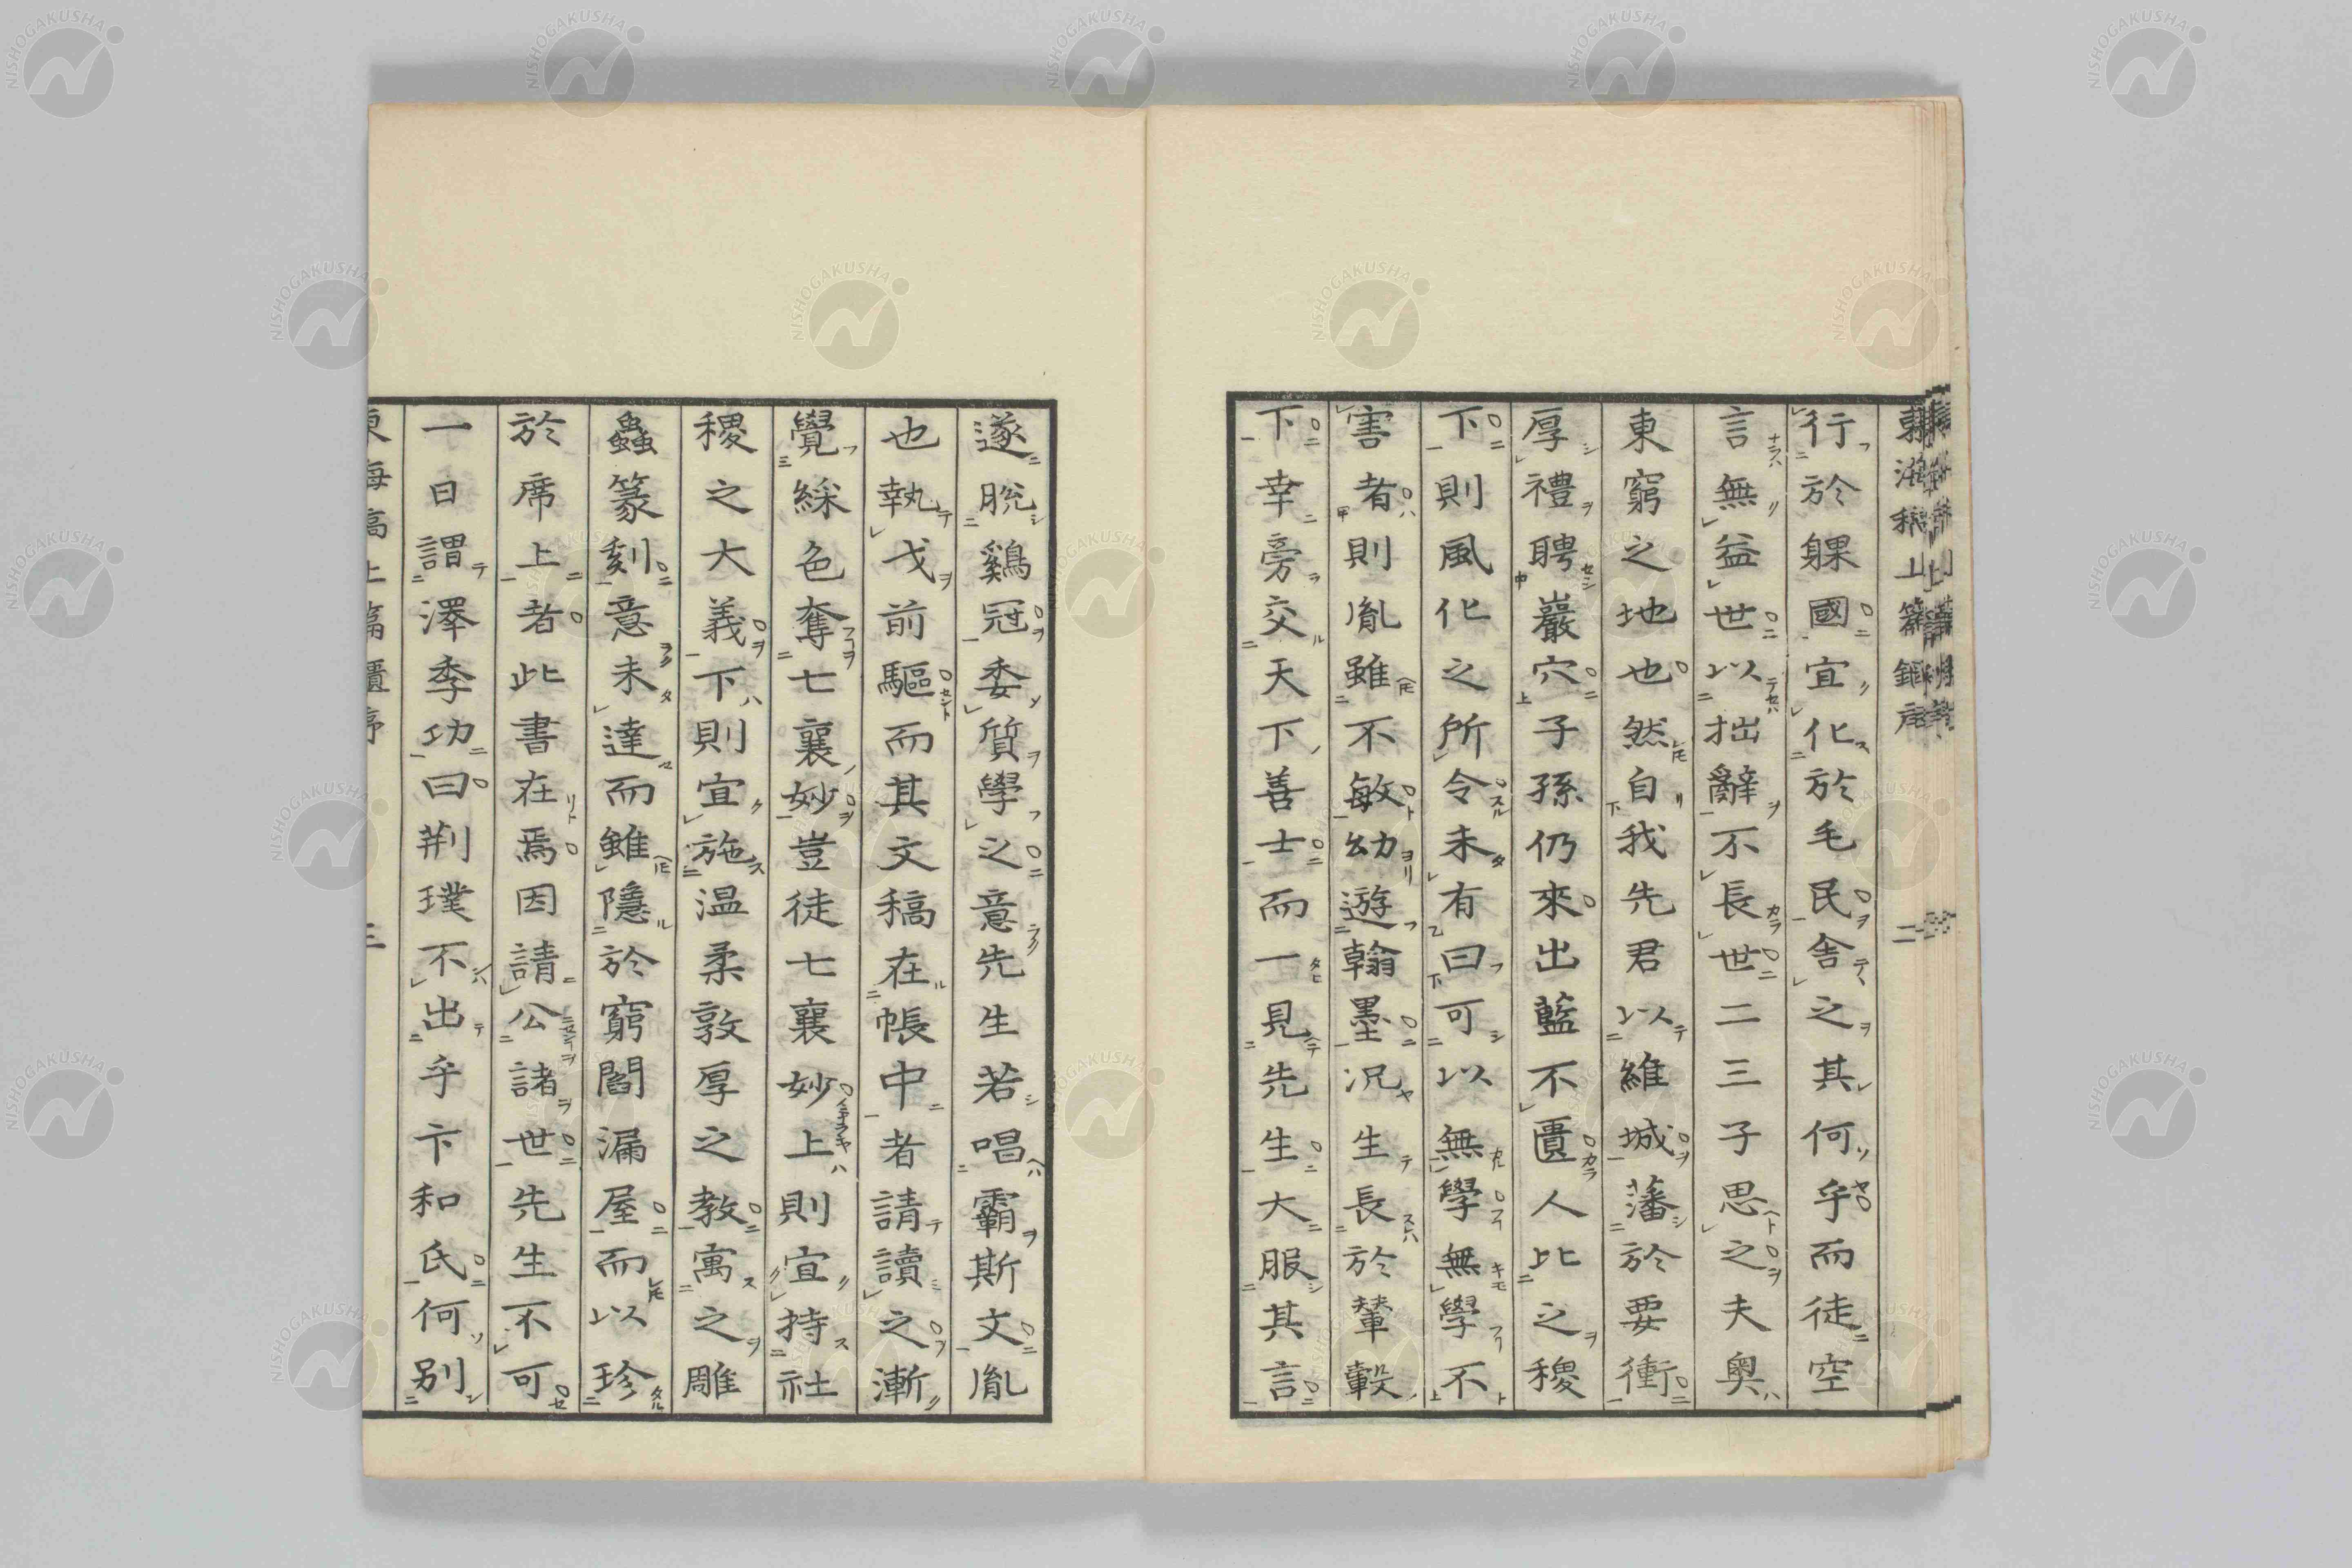 行於躶國宜化於毛民舍之其何乎而徒空
言無益世以拙辭不長世二三子思之夫奥
東窮之地也然自我先君以維城藩於要衝
厚禮聘巖穴子孫仍來出藍不匱人比之稷
下則風化之所令未有曰可以無學無學不
害者則胤雖不敏幼遊翰墨况生長於輦轂
下幸旁交天下善士而一見先生大服其言
遂脫鷄冠委質學之意先生若唱霸斯文胤
也執戈前驅而其文稿在帳中者請讀之漸
覺綵色奪七襄妙豈徒七襄妙上則宜持社
稷之大義下則宜施温柔敦厚之教寓之雕
蟲篆刻意未達而雖隱於窮閻漏屋而以珍
於席上者此書在焉因請公諸世先生不可
一日謂澤季功曰荆璞不出乎卞和氏何别
東海稿上篇
三
NISHOGAKUSHA